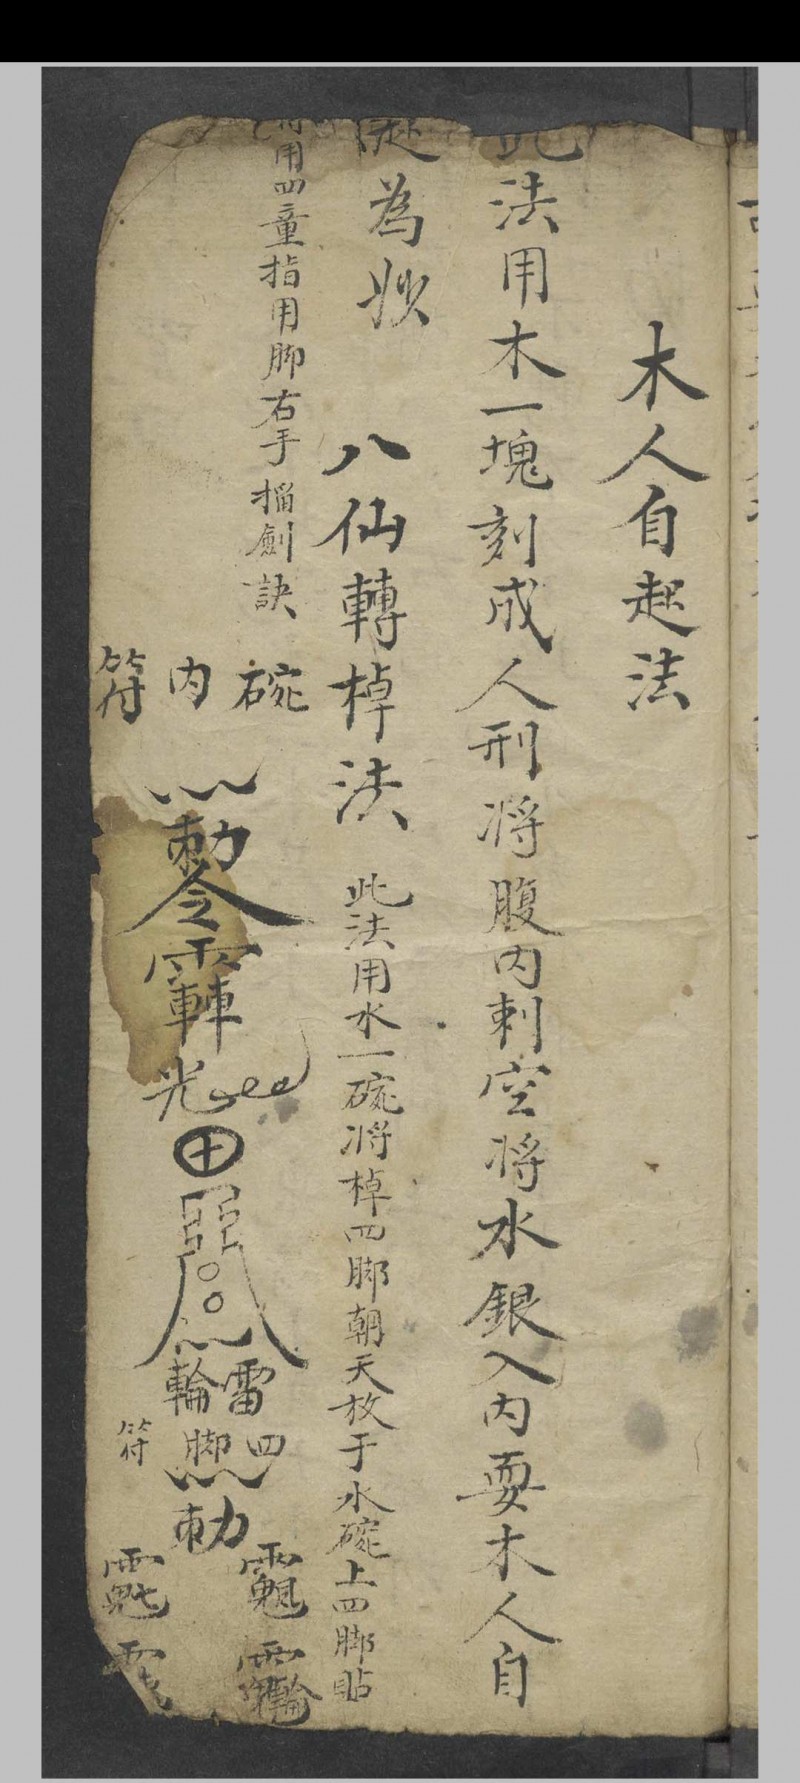 木人自起法
此法用木一塊刻成人刑将腹内刺空将水銀入内耍木人自
起為妙
八仙轉棹法
此法用水一碗将棹四脚朝天放于水碗上四脚貼
用四童指用脚右手搯劍訣
碗内符
勅令
光
雷輪
四脚符
勅